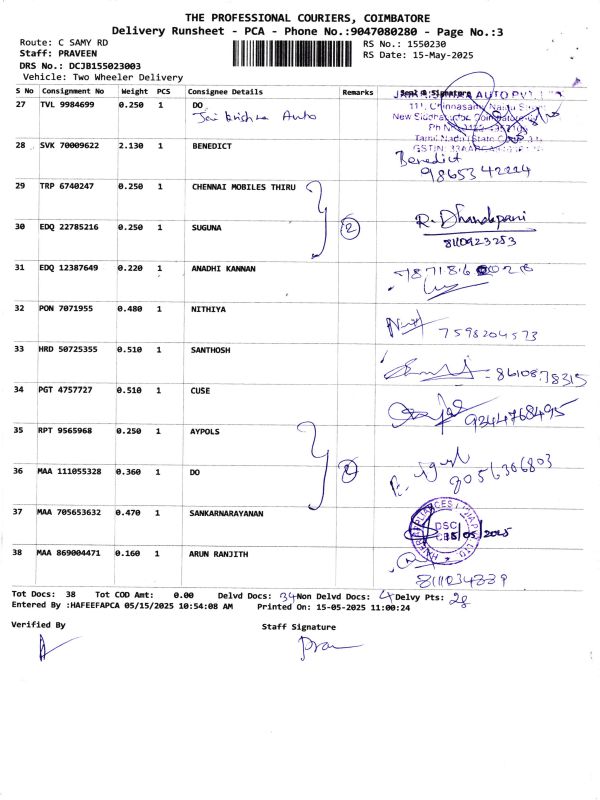 THE PROFESSIONAL COURIERS, COIMBATORE
Delivery Runsheet - PCA - Phone No.:9047080280 - Page No.:3
Route: C SAMY RD RS No.: 1550230
Staff: PRAVEEN RS Date: 15-May-2025
DRS No.: DCJB155023003
Vehicle: Two Wheeler Delivery
S No Consignment No Weight PCS Consignee Details Remarks Seal & Signature
27 TVL 9984699 0.250 1 DO
Jai krishna Auto
AUTO PVT. LTD
111, Chinnasamy Naidu
New Siddhapudur, Coimbatore
Tamil Nadu (State Code
28 SVK 70009622 2.130 1 BENEDICT
Benedict
9865342224
29 TRP 6740247 0.250 1 CHENNAI MOBILES THIRU
30 EDQ 22785216 0.250 1 SUGUNA 2
R. Dhandapani
8110923253
31 EDQ 12387649 0.220 1 ANADHI KANNAN
32 PON 7071955 0.480 1 NITHIYA
7598204573
33 HRD 50725355 0.510 1 SANTHOSH
8610878315
34 PGT 4757727 0.510 1 CUSE
9344768495
35 RPT 9565968 0.250 1 AYPOLS
36 MAA 111055328 0.360 1 DO
8056366803
37 MAA 705653632 0.470 1 SANKARNARAYANAN
DSC
CBE
15/05/2025
38 MAA 869004471 0.160 1 ARUN RANJITH
8111034839
Tot Docs: 38 Tot COD Amt: 0.00 Delvd Docs: 34 Non Delvd Docs: 4 Delvy Pts: 28
Entered By :HAFEEFAPCA 05/15/2025 10:54:08 AM Printed On: 15-05-2025 11:00:24
Verified By Staff Signature